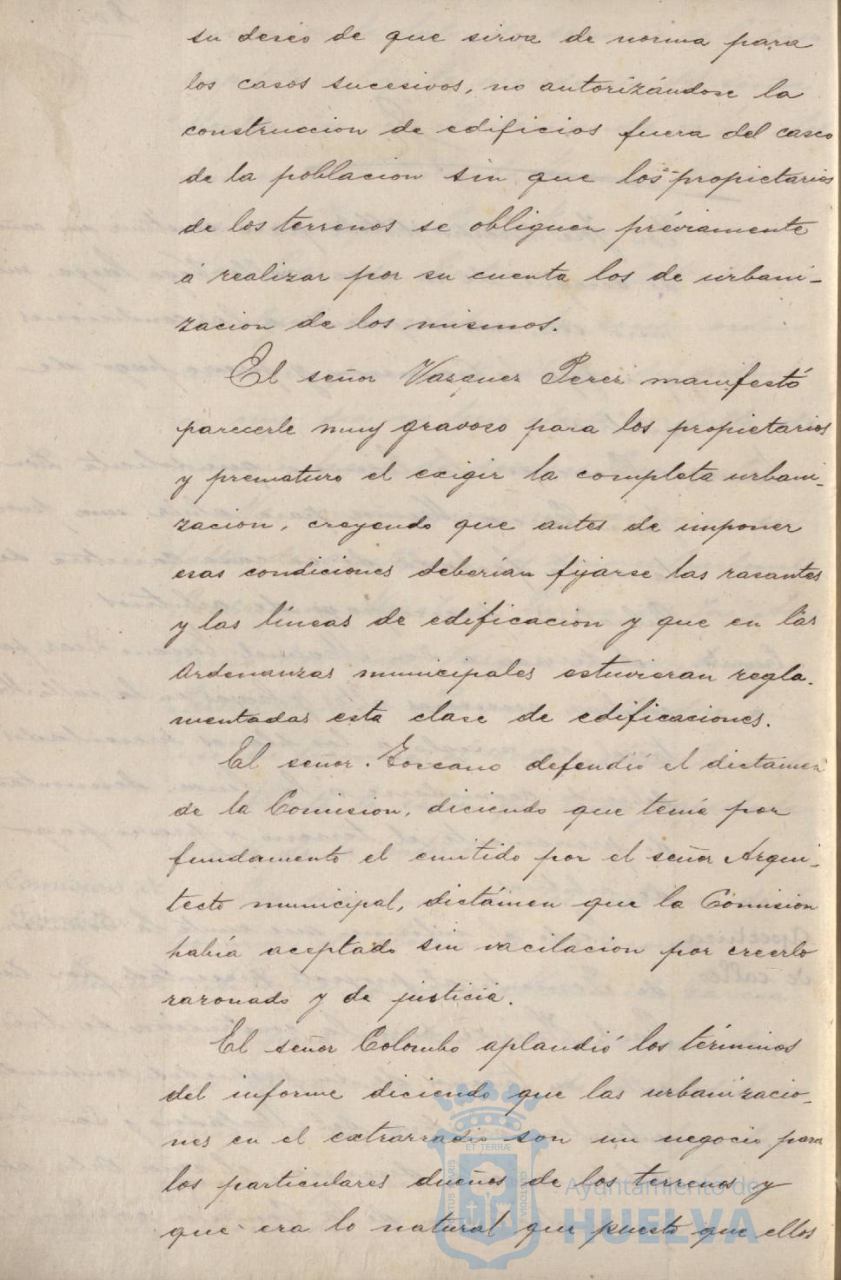 su deseo de que sirva de norma para
los casos sucesivos, no autorizándose la
construccion de edificios fuera del casco
de la poblacion sin que los propietarios
de los terrenos se obliguen préviamente
á realizar por su cuenta los de urbani-
zacion de los mismos.
El señor Vazquez Perez manifestó
parecerle muy gravoso para los propietarios
y prematuro el exigir la completa urbani-
zacion, creyendo que antes de imponer
esas condiciones deberían fijarse las rasantes
y las líneas de edificacion y que en las
Ordenanzas municipales estuvieran regla-
mentadas esta clase de edificaciones.
El señor Toscano defendió el dictamen
de la Comision, diciendo que tenía por
fundamento el emitido por el señor Arqui-
tecto municipal, dictámen que la Comision
había aceptado sin vacilacion por creerlo
razonado y de justicia.
El señor Colombo aplaudió los términos
del informe diciendo que las urbanizacio-
nes en el extrarradio son un negocio para
los particulares dueños de los terrenos y
que era lo natural que puesto que ellos
Ayuntamiento de
HUELVA